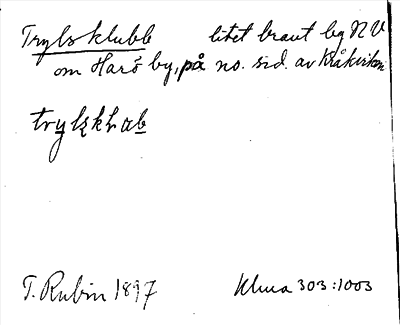 Trylsklubb litet brant bg NV
om Harö by, på no. sid. av Kråkviken
tryl̥sklu̥b
T. Rubin 1897 Uma 303:1003